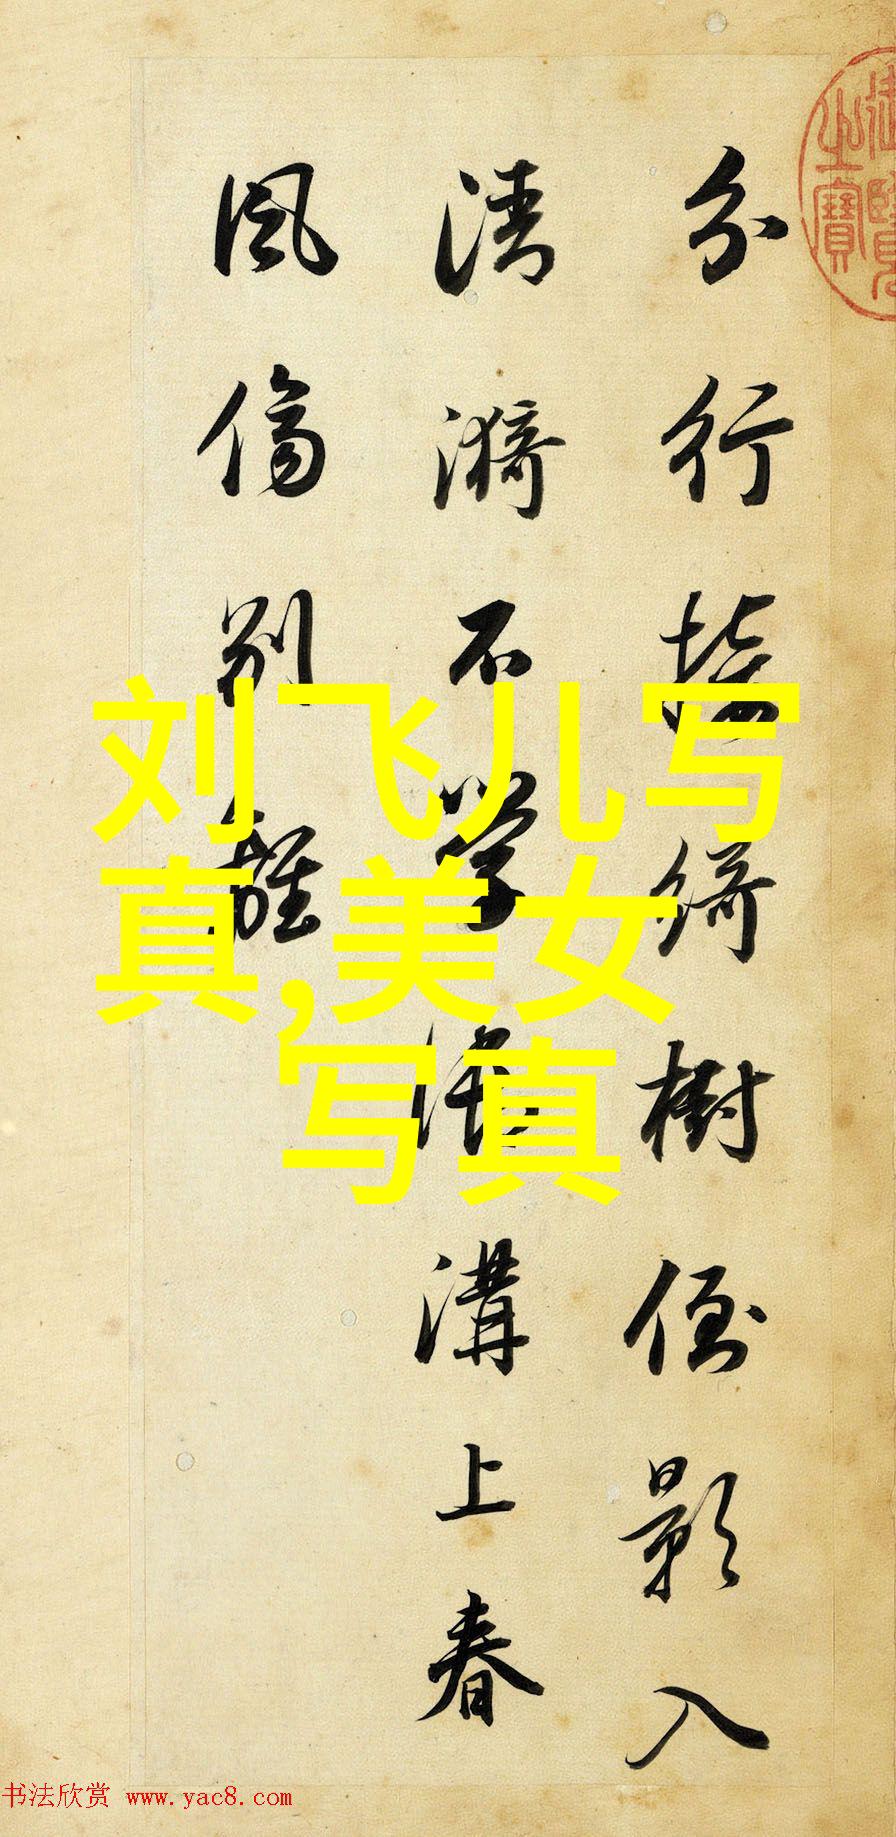 分行接綺樹倒影入
清漪不學御溝上春
風傷別離
刘飞儿写
真,美女
写真
之寶
书法欣赏 www.yac8.com